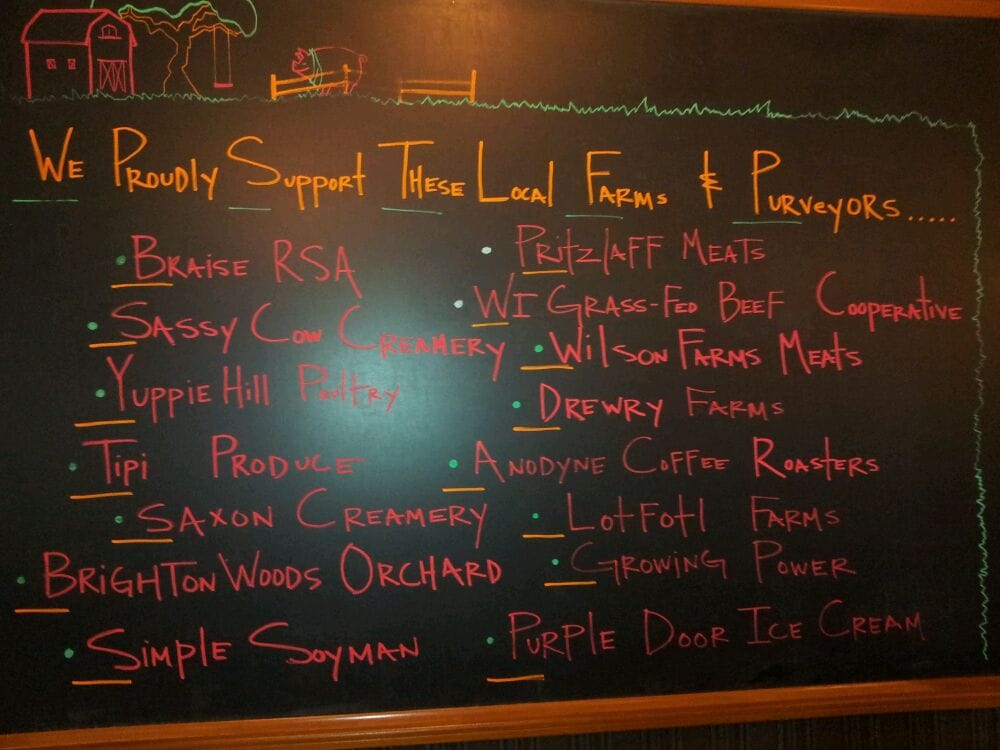 We Proudly Support These Local Farms & Purveyors.....
• Braise RSA
• Sassy Cow Creamery
• Yuppie Hill Poultry
• Tipi Produce
• Saxon Creamery
• Brighton Woods Orchard
• Simple Soyman
• Pritzlaff Meats
• WI Grass-Fed Beef Cooperative
• Wilson Farms Meats
• Drewry Farms
• Anodyne Coffee Roasters
• LotFotl Farms
• Growing Power
• Purple Door Ice Cream